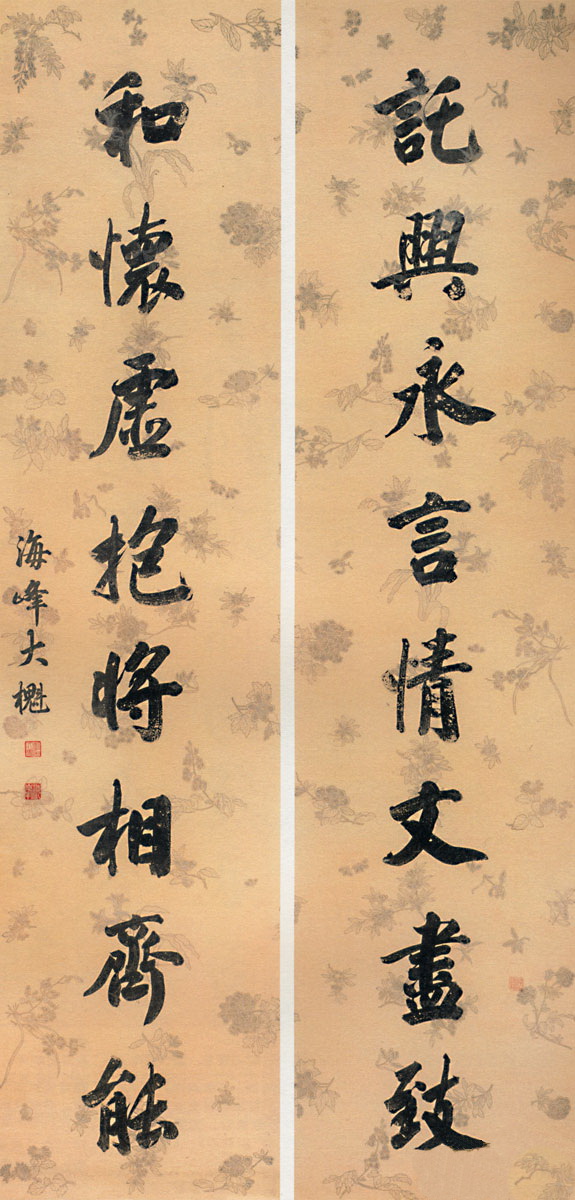 託興永言情文盡致
和懷虛抱將相齊能
海峰大櫆